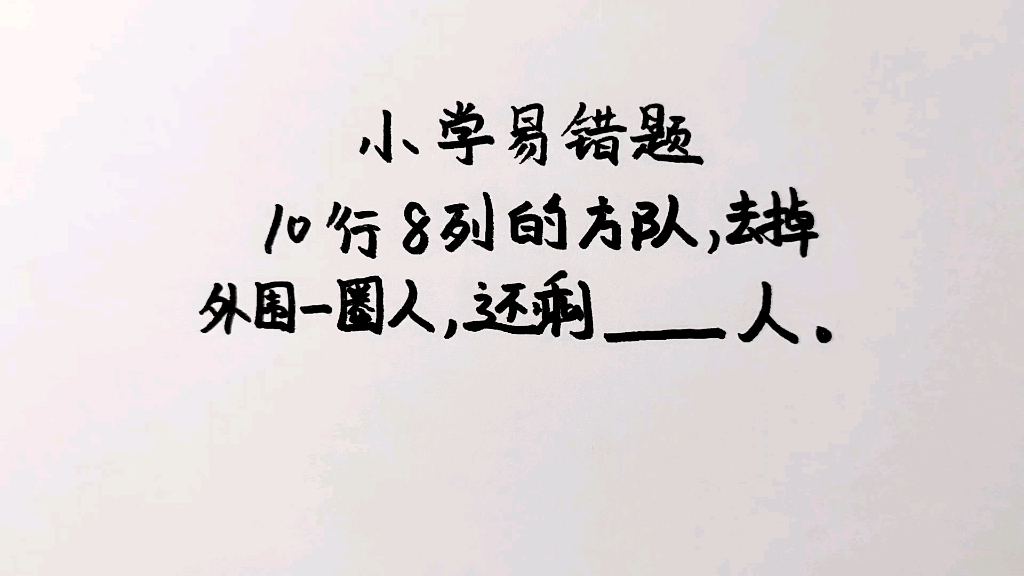 小学易错题
10行8列的方队,去掉
外围一圈人,还剩____人.